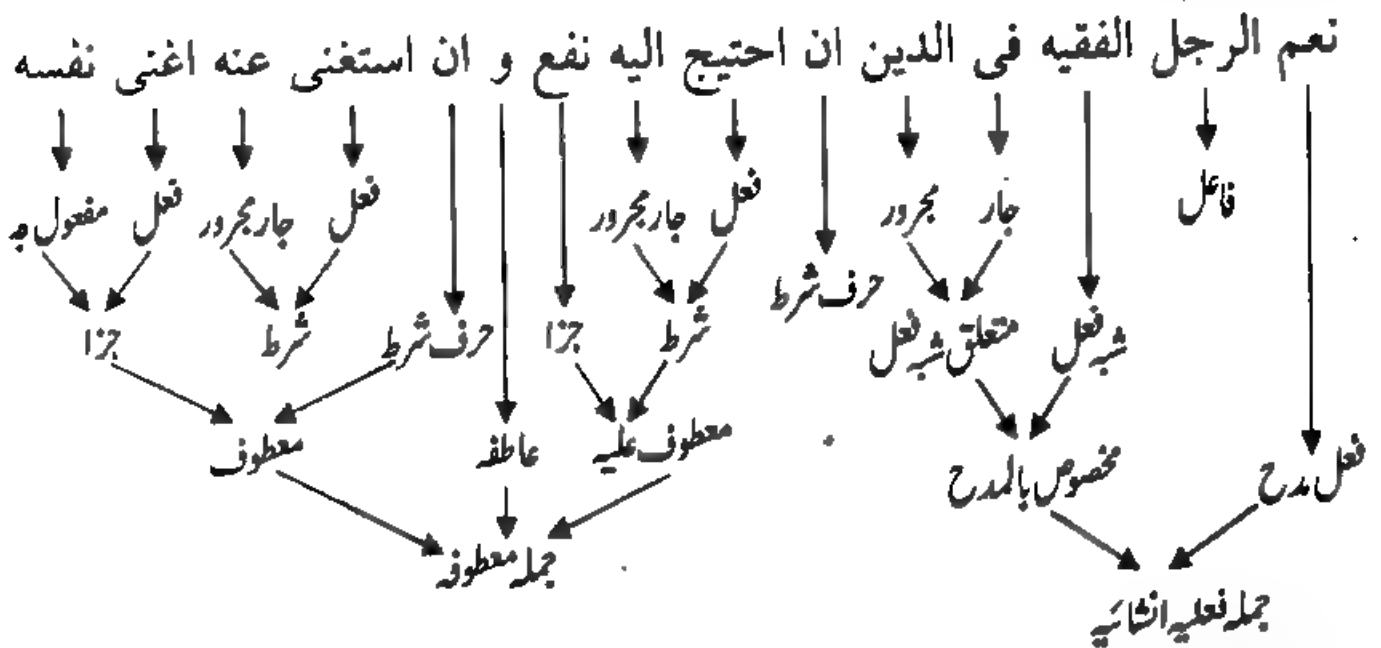 نعم الرجل الفقيه فى الدين ان احتيج اليه نفع و ان استغنى عنه اغنى نفسه
فاعل جار مجرور فعل جار مجرور فعل جار مجرور فعل مفعول بہ
حرف شرط
شبہ فعل متعلق شبہ فعل شرط جزا حرف شرط شرط جزا
فعل مدح مخصوص بالمدح معطوف علیہ عاطفہ معطوف
جملہ معطوفہ
جملہ فعلیہ انشائیہ